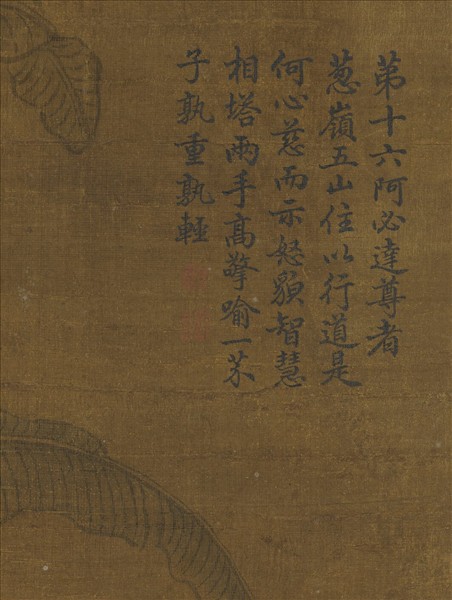 苐十六阿必達尊者
葱嶺五山住以行道是
何心慈而示怒䫉智慧
相塔兩手高擎喻一芥
子孰重孰輕